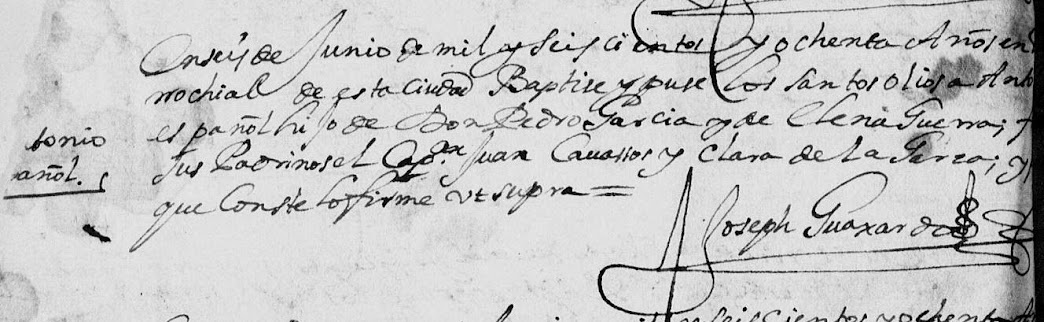 En seis de Junio de mil y seiscientos y ochenta Años en
rrochial de esta Ciudad Baptise y puse los santos olios a Anto
español hijo de Don Pedro Garcia y de Elena Guerra;
tonio
añol.
sus Padrinos el Capan Juan Cauassos y Clara de la Garza; y
que Conste lo firme vt supra =
Joseph Guaxardo
y seiscientos y ochenta A